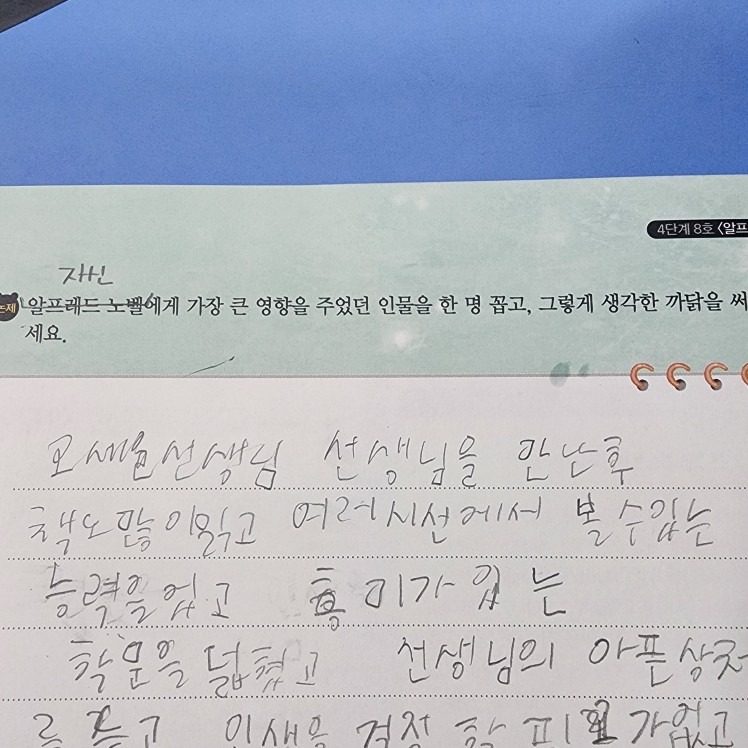 4단계 8호 〈알프
자신
논제 알프레드 노벨에게 가장 큰 영향을 주었던 인물을 한 명 꼽고, 그렇게 생각한 까닭을 써
세요.
선생님 선생님을 만난후
책도 많이 읽고 여러시선에서 볼수있는
능력을 얻고 흥미가 있는
학문을 넓혔고 선생님의 아픈상처
를 듣고 인생을 걱정 할 가없고